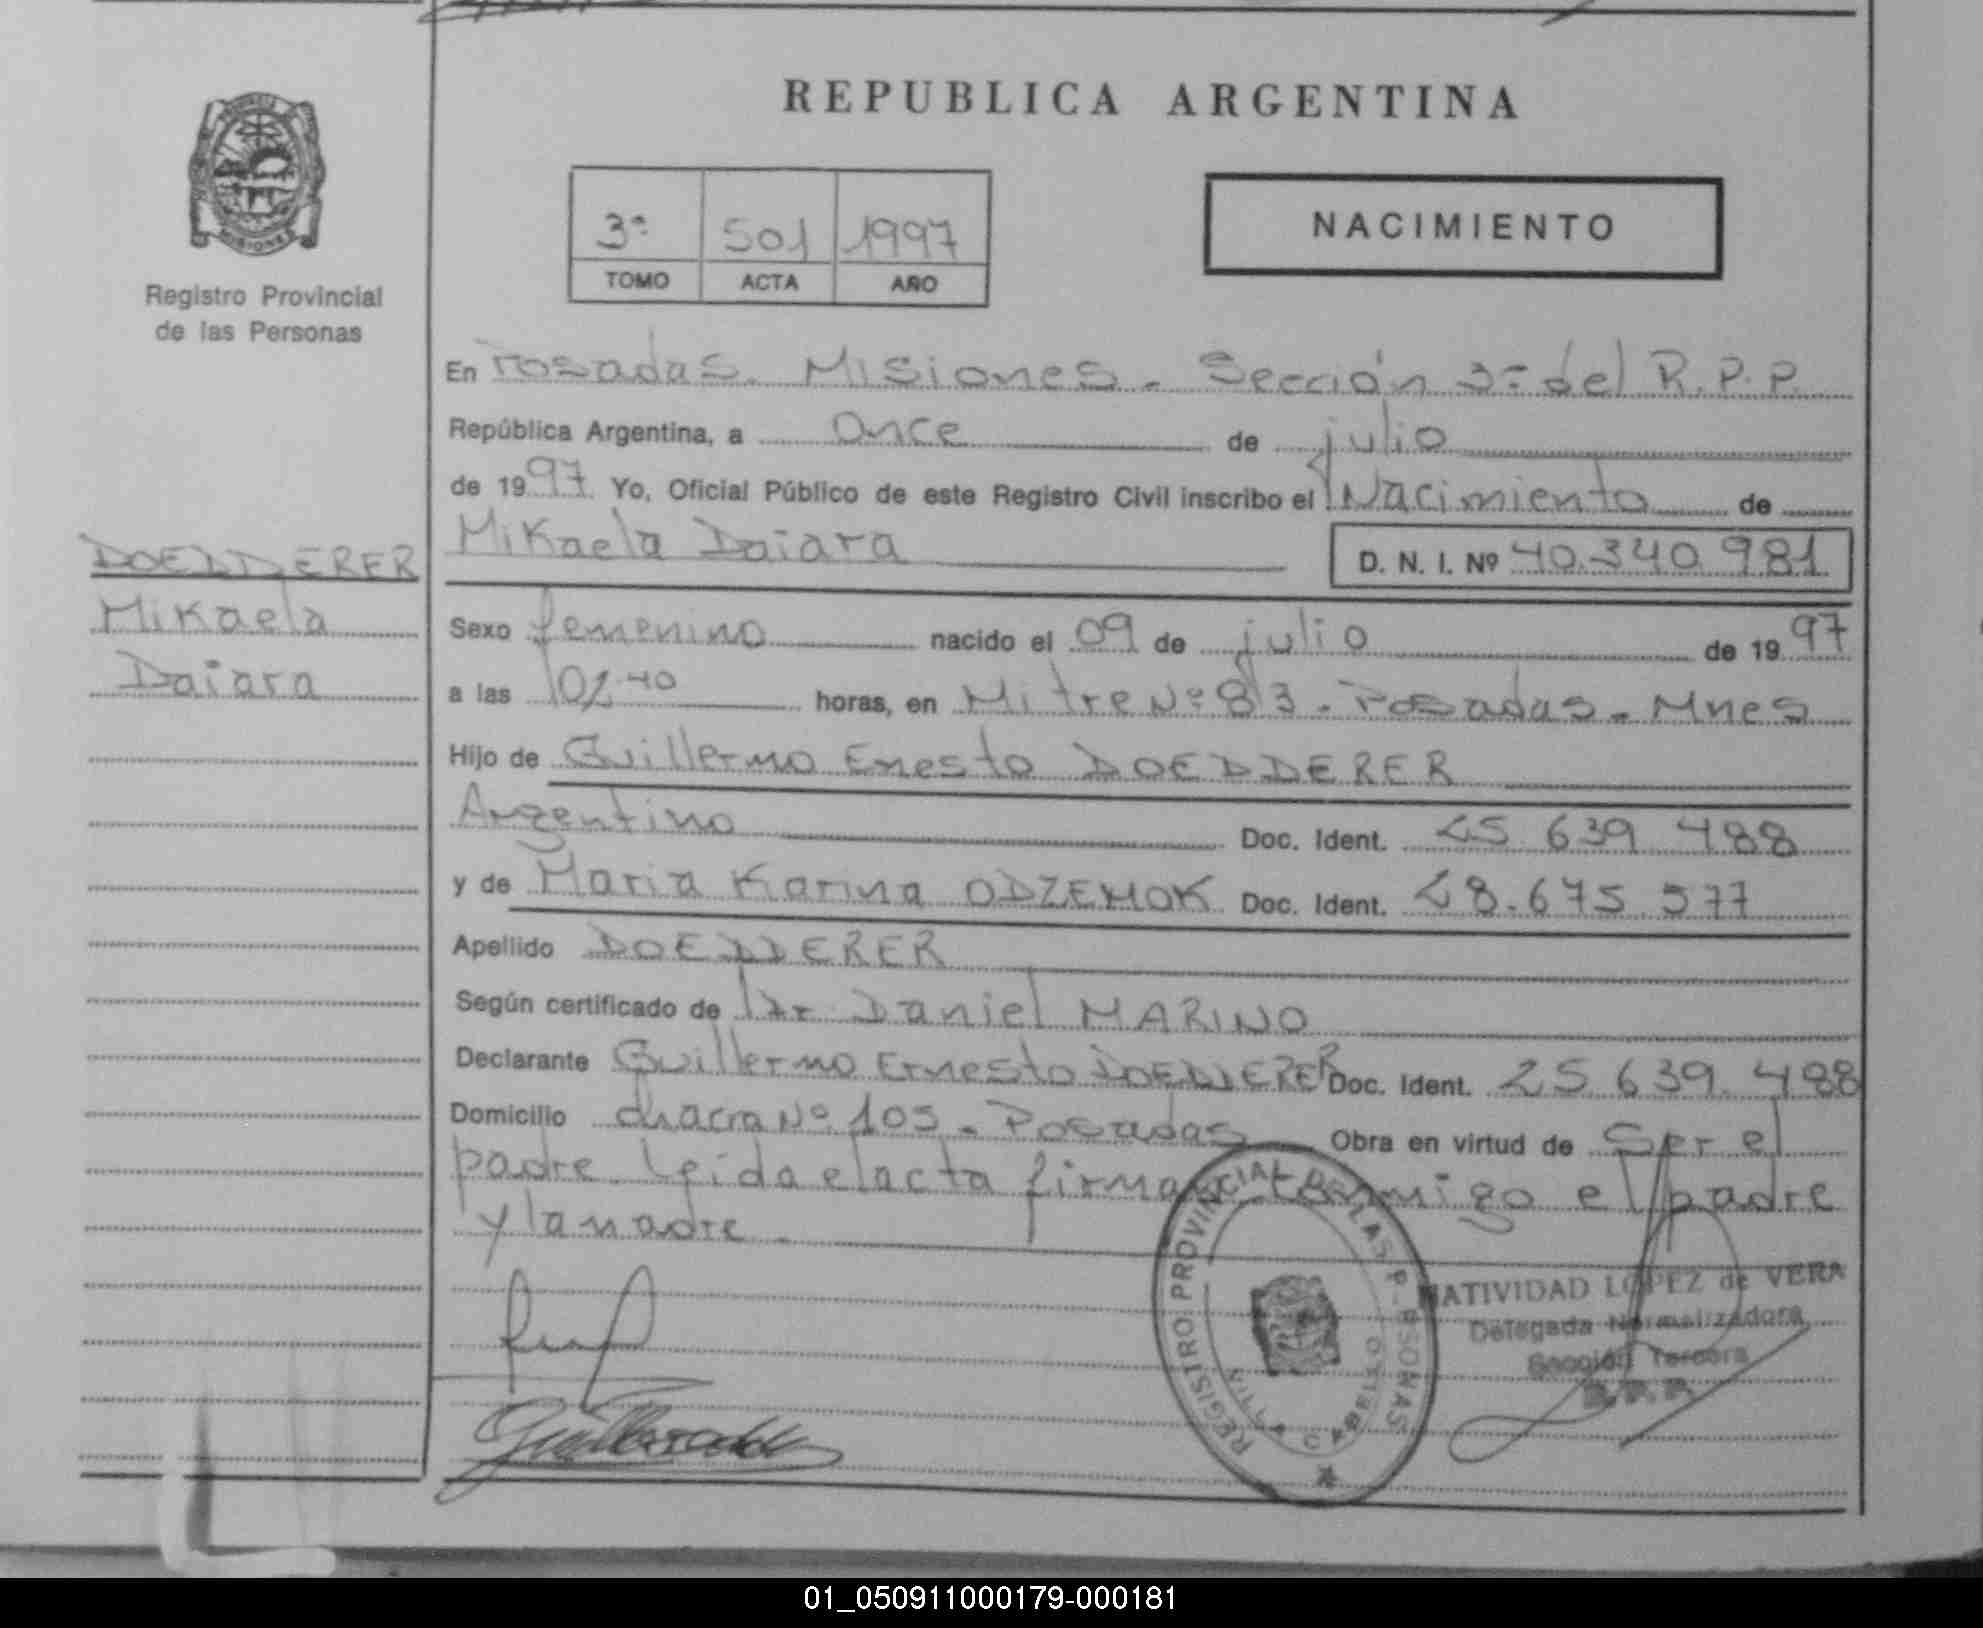 REPUBLICA ARGENTINA
PROVINCIA
MISIONES
Registro Provincial
de las Personas
3ª 501 1997
TOMO ACTA AÑO
NACIMIENTO
En Posadas. Misiones. Sección 3ª del R.P.P.
República Argentina, a Once de julio
de 1997 Yo, Oficial Público de este Registro Civil inscribo el Nacimiento de
Mikaela Daiara D. N. I. Nº 40.340.981
DOEDDERER
Mikaela
Daiara
Sexo femenino nacido el 09 de julio de 1997
a las 02 40 horas, en Mitre Nº 83. Posadas. Mnes
Hijo de Guillermo Enesto DOEDDERER
Argentino Doc. Ident. 25.639.488
y de Maria Karina ODZEMOK Doc. Ident. 28.675.577
Apellido DOEDDERER
Según certificado de Dr Daniel MARINO
Declarante Guillermo Ernesto DOEDDERER Doc. Ident. 25.639.488
Domicilio chacra Nº 105. Posadas Obra en virtud de Ser el
padre. Leida el acta firman conmigo el padre
y la madre.
REGISTRO PROVINCIAL DE LAS PERSONAS
NATIVIDAD LOPEZ de VERA
Delegada Normalizadora
Sección Tercera
R.P.P.
01_050911000179-000181